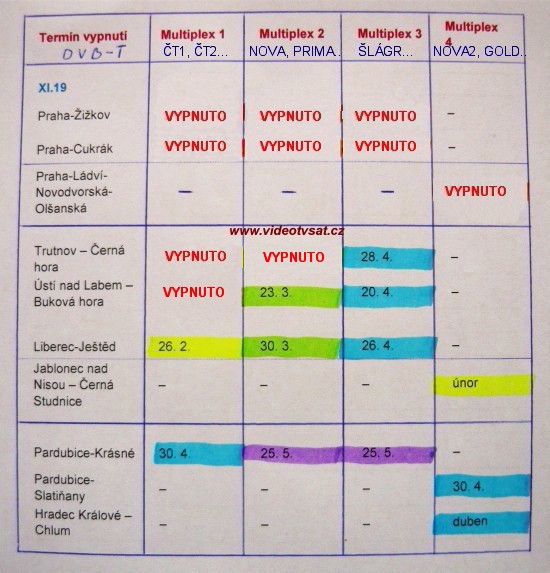 Termín vypnutí Multiplex 1 Multiplex 2 Multiplex 3 Multiplex 4
DVB-T ČT1, ČT2... NOVA, PRIMA.. ŠLÁGR... NOVA2, GOLD..
XI.19
Praha-Žižkov VYPNUTO VYPNUTO VYPNUTO –
Praha-Cukrák VYPNUTO VYPNUTO VYPNUTO –
Praha-Ládví-
Novodvorská- – – – VYPNUTO
Olšanská
www.videotvsat.cz
Trutnov – Černá VYPNUTO VYPNUTO 28. 4. –
hora
Ústí nad Labem – VYPNUTO 23. 3. 20. 4. –
Buková hora
Liberec-Ještěd 26. 2. 30. 3. 26. 4. –
Jablonec nad
Nisou – Černá – – – únor
Studnice
Pardubice-Krásné 30. 4. 25. 5. 25. 5. –
Pardubice- – – – 30. 4.
Slatiňany
Hradec Králové – – – – duben
Chlum